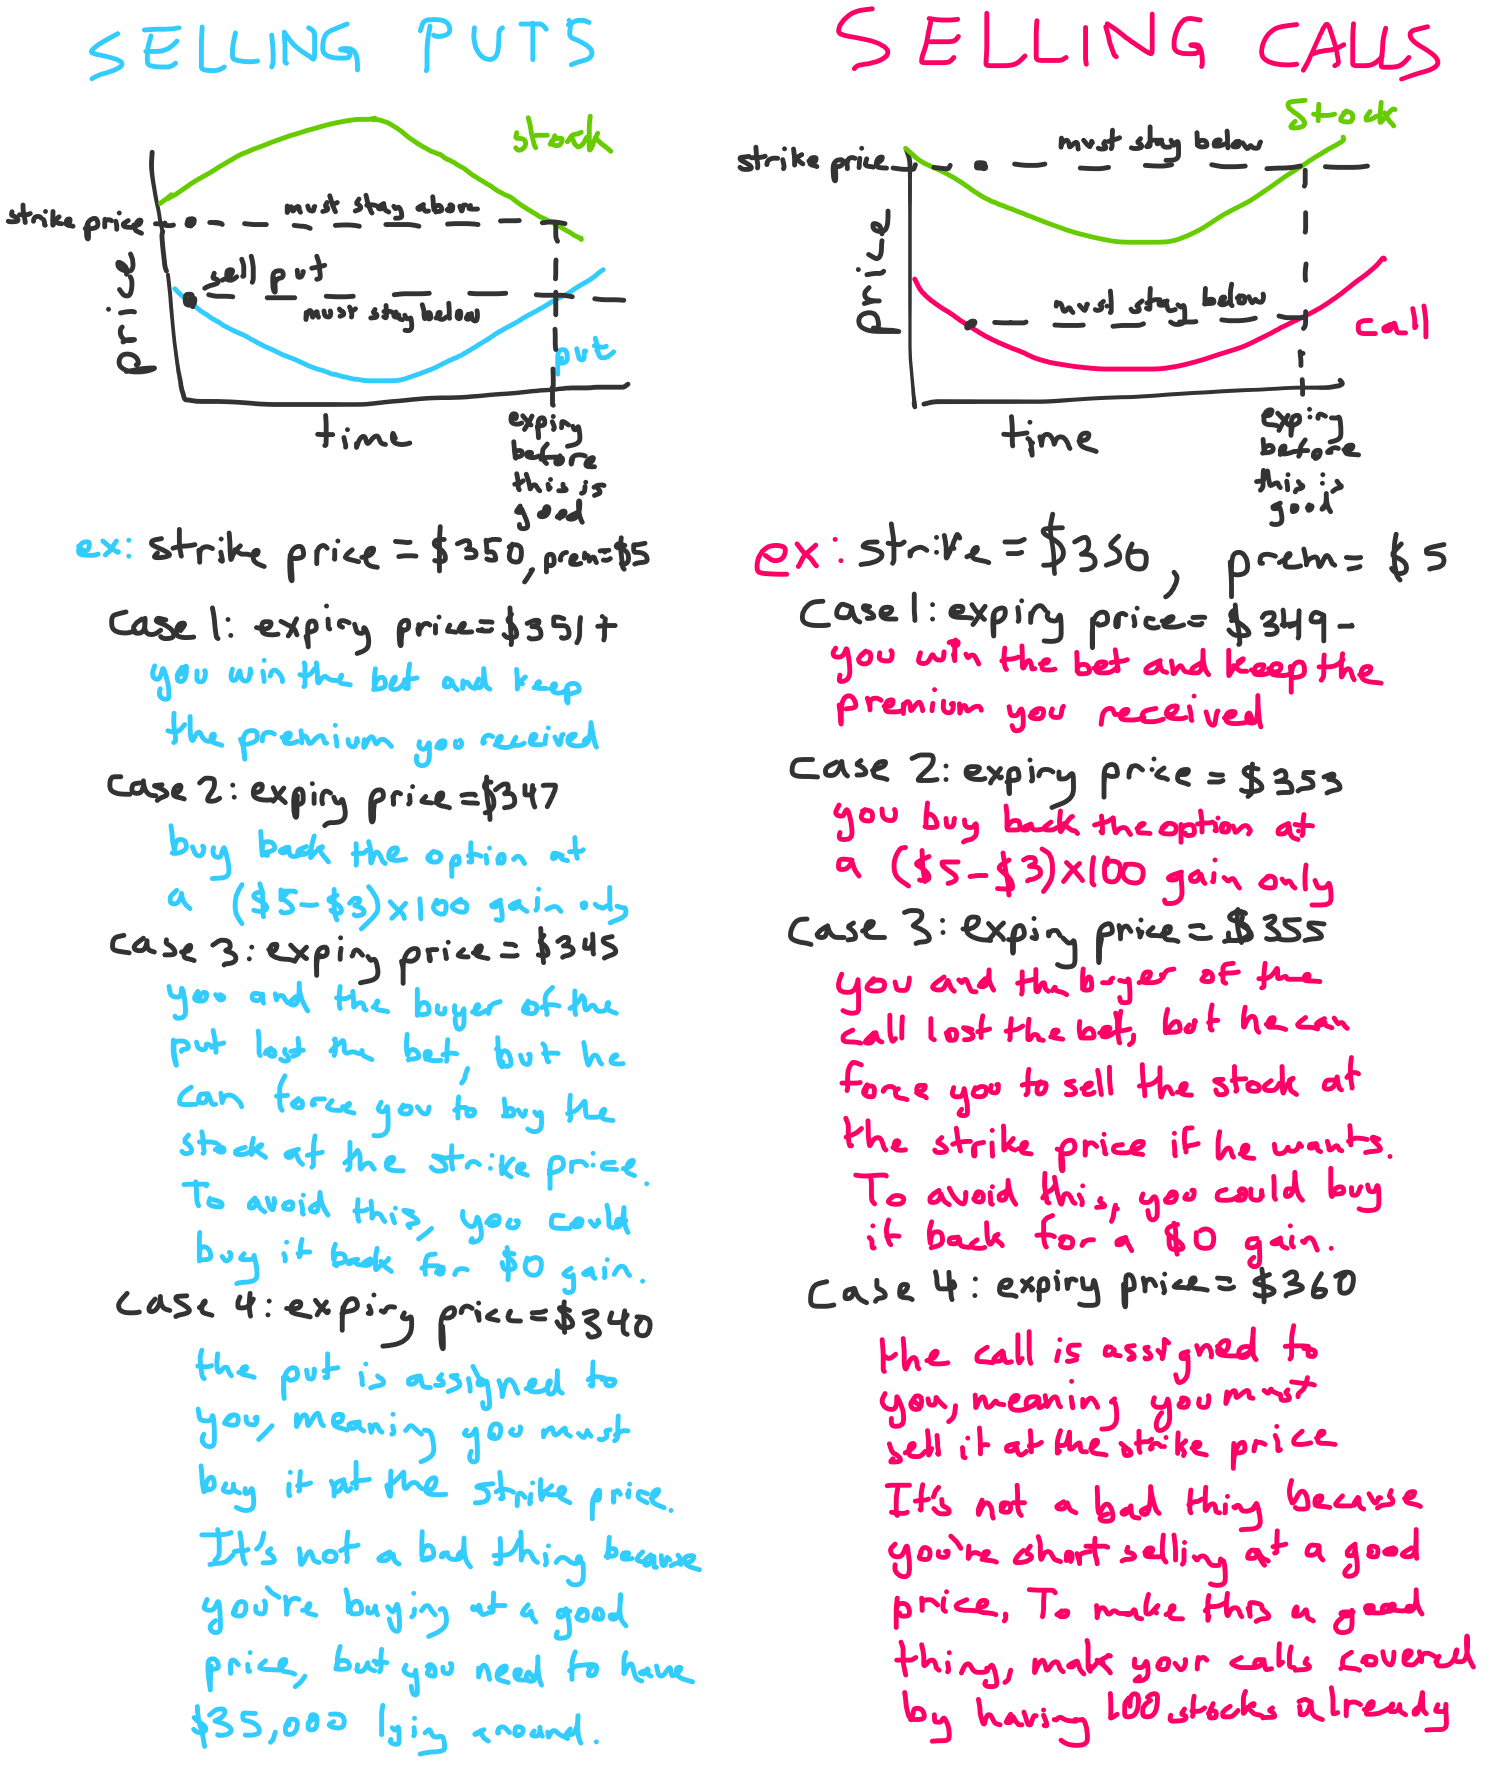 SELLING PUTS
stock
strike price
must stay above
sell put
must stay below
price
put
time
expiry
before
this is
good
ex: strike price = $350, prem=$5
Case 1: expiry price=$351+
you win the bet and keep
the premium you received
Case 2: expiry price=$347
buy back the option at
a ($5-$3)x100 gain only
Case 3: expiry price = $345
you and the buyer of the
put lost the bet, but he
can force you to buy the
stock at the strike price.
To avoid this, you could
buy it back for $0 gain.
Case 4: expiry price=$340
the put is assigned to
you, meaning you must
buy it at the strike price.
It's not a bad thing because
you're buying at a good
price, but you need to have
$35,000 lying around.
SELLING CALLS
Stock
strike price
must stay below
price
must stay below
call
time
expiry
before
this is
good
ex: strike = $350, prem = $5
Case 1: expiry price= $349-
you win the bet and keep the
premium you received
Case 2: expiry price = $353
you buy back the option at
a ($5-$3)x100 gain only
Case 3: expiry price = $355
you and the buyer of the
call lost the bet, but he can
force you to sell the stock at
the strike price if he wants.
To avoid this, you could buy
it back for a $0 gain.
Case 4: expiry price = $360
the call is assigned to
you, meaning you must
sell it at the strike price
It's not a bad thing because
you're short selling at a good
price, To make this a good
thing, make your calls covered
by having 100 stocks already